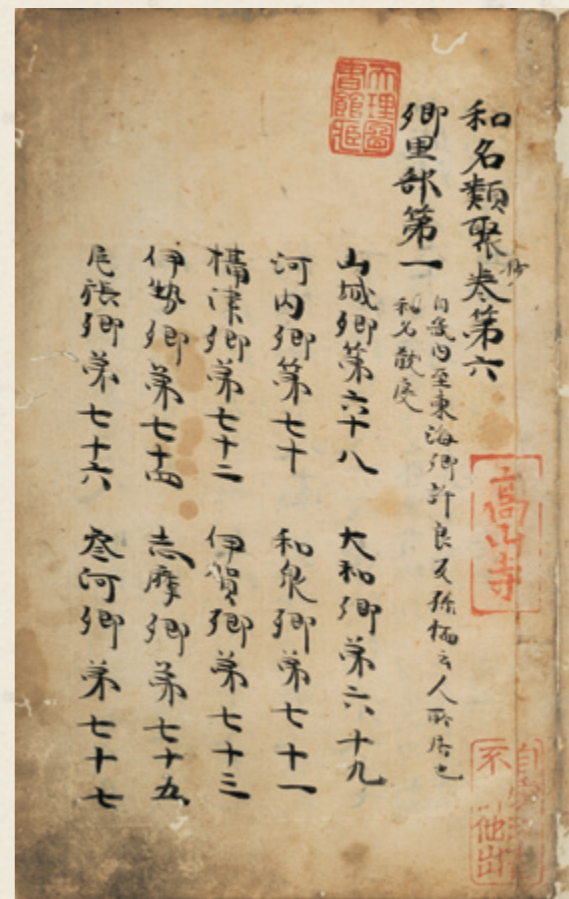 和名類聚抄巻第六
郷里部第一
自畿内至東海郷許良反孫愐云人所居也
和名散度
山城郷第六十八 大和郷第六十九
河内郷第七十 和泉郷第七十一
攝津郷第七十二 伊賀郷第七十三
伊勢郷第七十四 志摩郷第七十五
尾張郷第七十六 参河郷第七十七
天理圖書館藏
高山寺
不他出